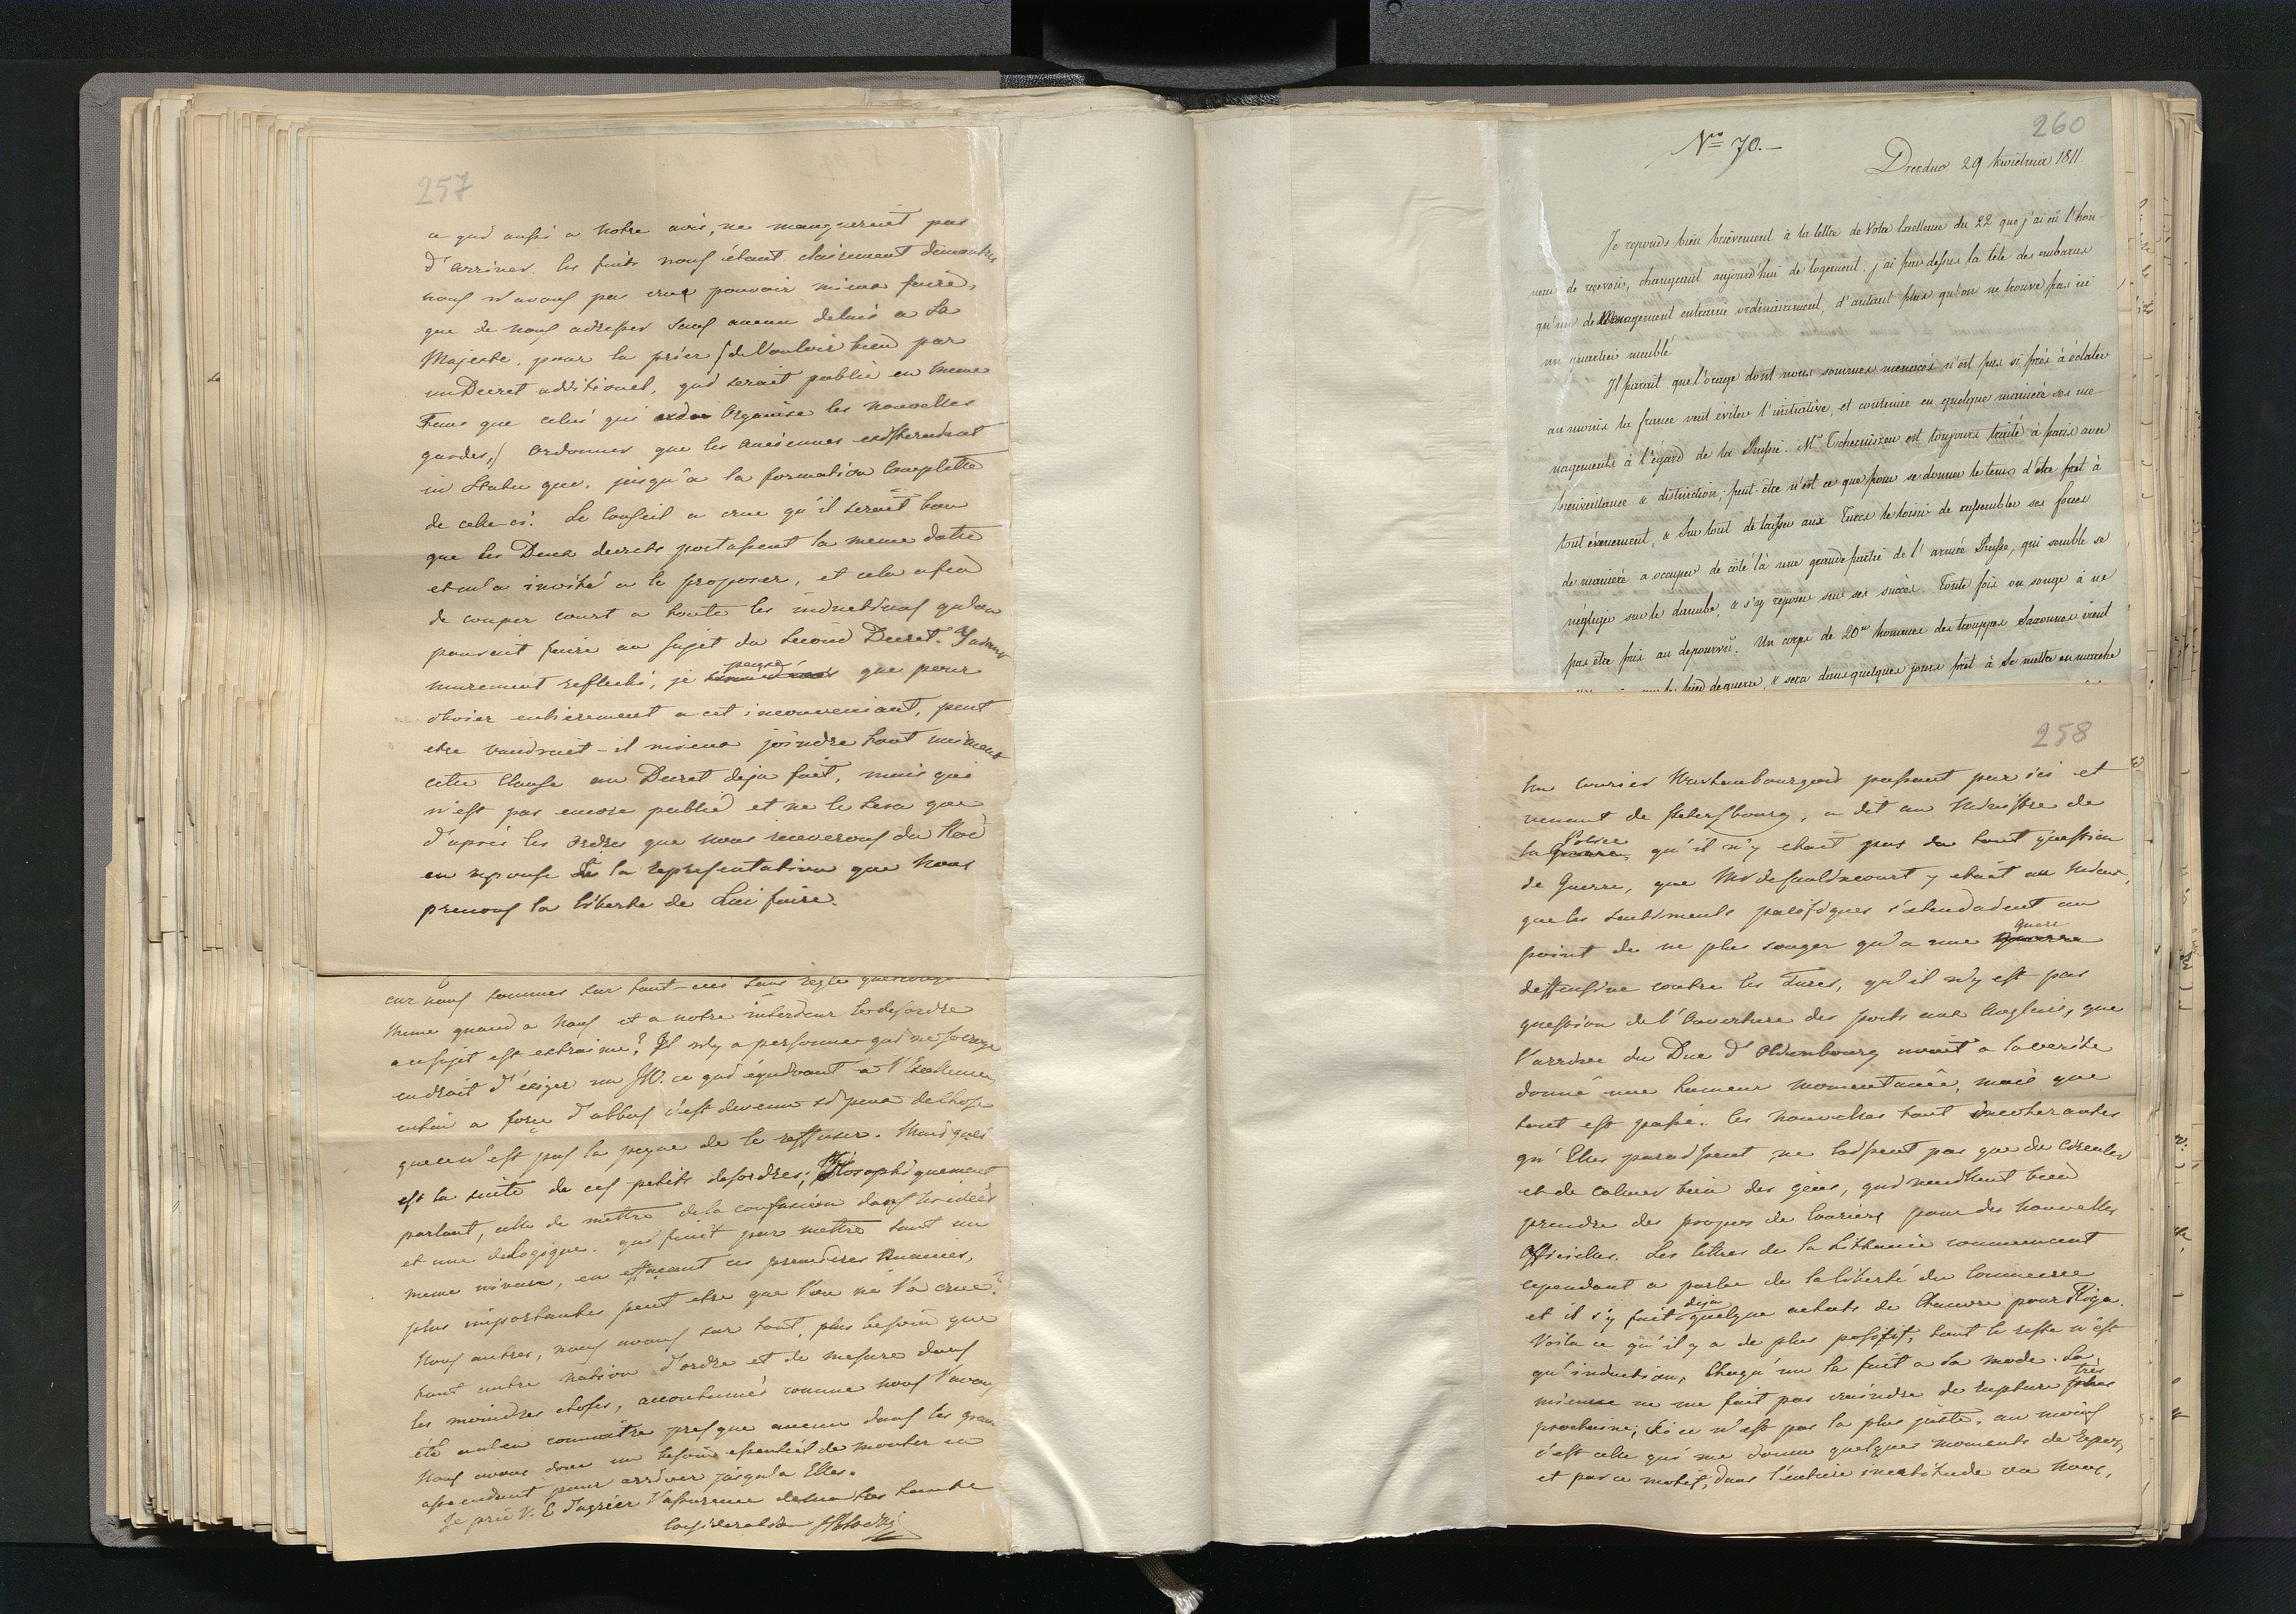 257
a qui aussi a notre avis, ne manqueroit pas
d'arriver. les faits nous étant clairement demontrés
nous n'avons pas crus pouvoir mieux faire,
que de nous adresser sans aucun delais a Sa
Majesté, pour la prier (de Vouloir bien par
un Decret additionel, qui serait publié en meme
Tems que celui qui organise les nouvelles
gardes,) ordonner que les anciennes existerendent
in statu quo, jusqu'à la formation complette
de celle ci. Le Conseil a crue qu'il serait bon
que les Deux decrets portassent la meme datte
et m'a invité a le proposer, et cela afin
de couper court a toute les inductions qu'on
pouroit faire au sujet du second Decret. J'ai
murement reflechi, je pense que pour
obvier entierement a cet inconvenient, peut
etre vaudrait-il mieux joindre tout uniment
cette Clause au Decret deja fait, mais qui
n'est pas encore publié et ne le sera que
d'après les ordres que nous receverons du Roi
en reponse de la representation que nous
prenons la liberté de Lui faire.
car nous sommes sur tout-ceci sans regle
meme quand a nous et a notre interieur le desordre
a ce sujet est extreme? Il n'y a personne qui ne se croye
en droit d'exiger un JW. ce qui équivaut à l'Excellence,
enfin a force d'abbus c'est devenu si peux de chose
que ce n'est pas la peyne de le reffuser. Mais quel
est la suite de ces petits desordres; Philosophiquement
parlant, celle de mettre de la confusion dans les idées
et une de logique. qui finit par mettre tout au
meme niveau, en effaçant ces premieres nuances,
plus importantes peut etre que l'on ne l'a crue?
Nous autres, nous avons sur tout, plus besoin que
tout autre nation d'ordre et de mesure dans
les moindres choses, accoutumés comme nous l'avons
été a n'en connoitre presque aucun dans les grandes
Nous avons donc un besoin essentiel de monter en
ascendant pour arriver jusqu'a Elles.
Je prie V. E d'agréer l'assurance de ma tres haute
consideration
260
Nro 70.—
Drezdno 29 kwietnia 1811.
Je reponds bien brièvement à la lettre de Votre Excellence du 22 que j'ai eû l'hon-
neur de recevoir, changeant aujourd'hui de logement. j'ai par dessus la tête des embaras
qu'un demenagement entraine ordinairement, d'autant plus qu'on ne trouve pas ici
un quartier meublé.
Il parait que l'orage dont nous sommes menacés n'est pas si près à éclater
au moins la france veut éviter l'initiative, et continue en quelque manière ses me-
nagements à l'égard de la Russie. Mr Tchernischeu est toujours traité à paris avec
bienveillance & distinction; peut-être n'est ce que pour se donner le tems d'être prêt à
tout évenement, & sur tout de laisser aux Turcs le loisir de rassembler ses forces
de manière a occuper de côté là une grande partie de l'armée Russe, qui semble se
negliger sur le danube, & s'y reposer sur ses succès. Toute fois on songe à ne
pas être pris au depourvû. Un corps de 20m hommes des trouppes Saxonnes vient
pied de guerre, & sera dans quelques jours prêt à se mettre en marche
258
Un courier Wurtembourgeois passant par ici et
venant de Petersbourg, a dit au Ministre de
la Police qu'il n'y etait pas du tout question
de Guerre, que Mr de Caulincourt y etait au mieux,
que les sentiments pacifiques s'etendaient au
point de ne plus songer qu'a une guere
deffensive contre les Turcs, qu'il n'y est pas
question de l'ouverture des ports aux Anglais, que
l'arrivée du Duc d'Oldenbourg avait a la verité
donné une humeur momentanée, mais que
tout est passé. Ces nouvelles tout incoherantes
qu'Elles paraissent, ne laissent pas que de circuler
et de calmer bien des gens, qui veuillent bien
prendre des propos de couriers pour des nouvelles
officieles. Les lettres de la Lithuanie commencent
cependant a parler de la liberté du Commerce
et il s'y fait deja quelque achats de Chanvre pour Riga.
Voila ce qu'il y a de plus positif, tout le reste n'est
qu'induction, Chaqu'un la fait a sa mode. La
mienne ne me fait pas craindre de rupture très
prochaine; si ce n'est pas la plus juste, au moins
c'est celle qui me donne quelques moments de repos,
et par ce motif, dans l'entiere incertitude ou nous,